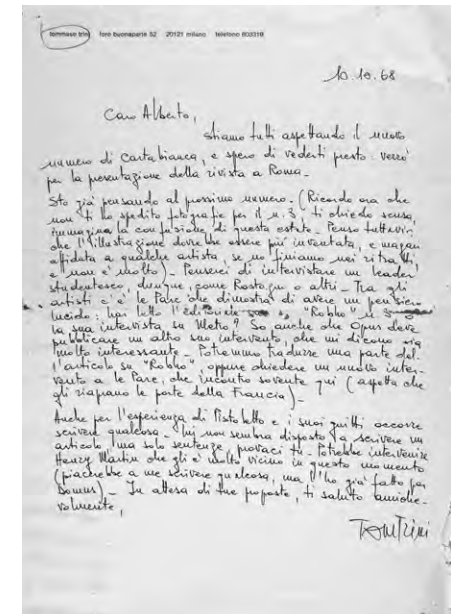 tommaso trini foro buonaparte 52 20121 milano telefono 803319
10.10.68
Caro Alberto,
stiamo tutti aspettando il nuovo
numero di Cartabianca, e spero di vederti presto. Verrò
per la presentazione della rivista a Roma.
Sto già pensando al prossimo numero. (Ricordo ora che
non ti ho spedito fotografie per il n. 3, ti chiedo scusa,
immagina la confusione di questa estate. Penso tuttavia
che l'illustrazione dovrebbe essere più inventata, e magari
affidata a qualche artista, se no finiamo nei ritratti,
e non è molto). Penserei di intervistare un leader
studentesco, dunque, come Rostagno o altri. Tra gli
artisti c'è le Parc che dimostra di avere un pensiero
lucido: hai letto l'editoriale su "Robho" n. 3
la sua intervista su Meta? So anche che Opus deve
pubblicare un altro suo intervento, che mi dicono sia
molto interessante. Potremmo tradurre una parte del-
l'articolo su "Robho", oppure chiedere un nuovo inter-
vento a le Parc, che incontro sovente qui (aspetta che
gli riaprano le porte della Francia).
Anche per l'esperienza di Pistoletto e i suoi guitti occorre
scrivere qualcosa. Lui non sembra disposto a scrivere un
articolo (ma solo sentenze, provaci tu. Potrebbe intervenire
Henry Martin che gli è molto vicino in questo momento
(piacerebbe a me scrivere qualcosa, ma l'ho già fatto per
Domus). In attesa di tue proposte, ti saluto amiche-
volmente,
Tom Trini